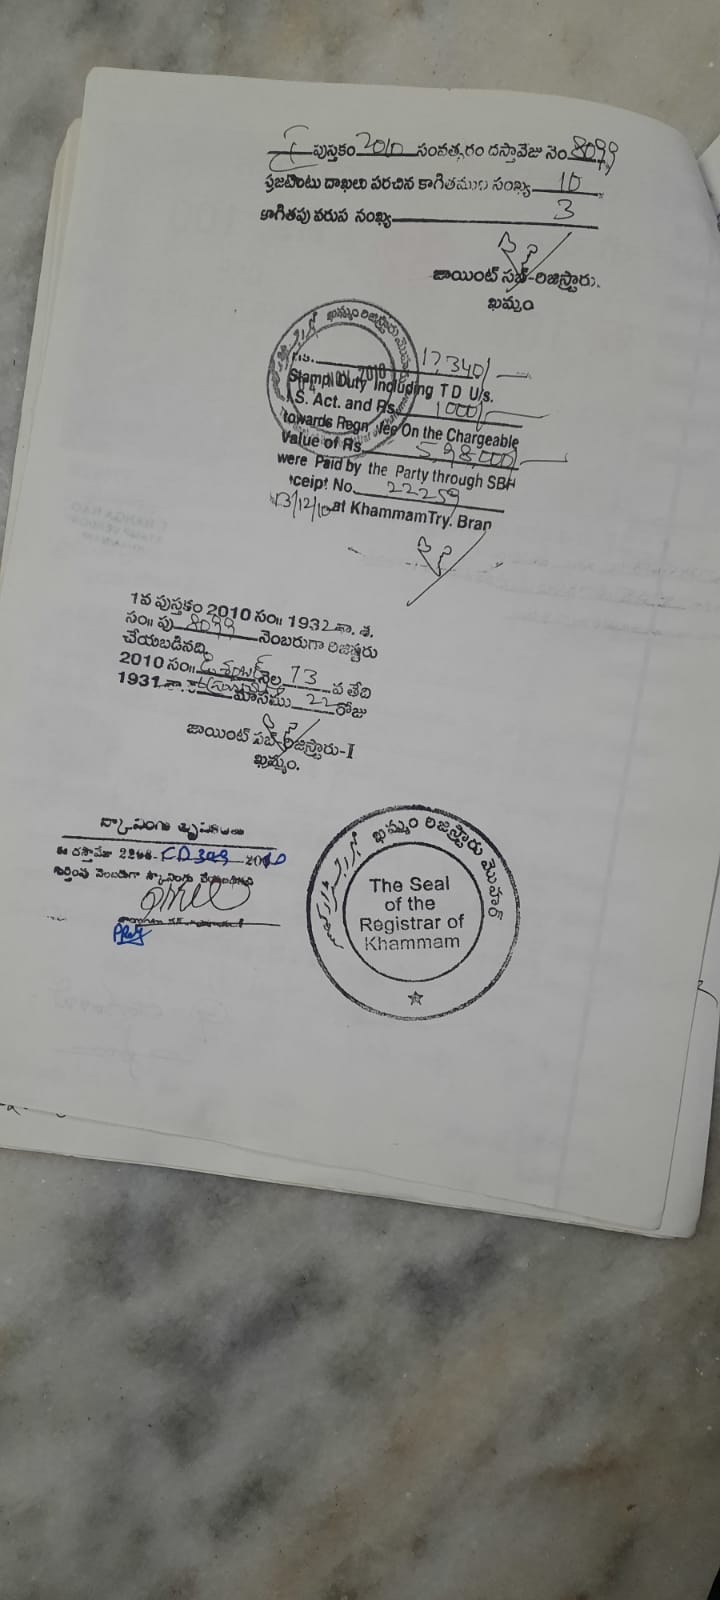 I పుస్తకం 2010 సంవత్సరం దస్తావేజు నెం 8099
దాఖలు పరచిన కాగితముల సంఖ్య 10
కాగితపు వరుస సంఖ్య 3
జాయింట్ సబ్-రిజిస్ట్రారు.
ఖమ్మం
ఖమ్మం రిజిస్ట్రారు మొహర్
Rs. 17,340/-
Stamp Duty Including T D U/s.
I.S. Act. and Rs. 1000/-
towards Regn. fee On the Chargeable
Value of Rs. 5,98,000/-
were Paid by the Party through SBH
ceipt No. 22259
13/12/10 at Khammam Try. Bran
1వ పుస్తకం 2010 సం॥ 1932 శా. శ.
సం॥ పు 8099 నెంబరుగా రిజిష్టరు
చేయబడినది.
2010 సం॥ డిశంబర్ నెల 13 వ తేది
1931 శా. మాసము 22 రోజు
జాయింట్ సబ్-రిజిస్ట్రారు-I
ఖమ్మం.
స్కానింగు ధృవీకరణ
ఈ దస్తావేజు 2010
గుర్తింపు నెంబరుగా స్కానింగు చేయబడినది
ఖమ్మం రిజిస్ట్రారు మొహర్
The Seal
of the
Registrar of
Khammam